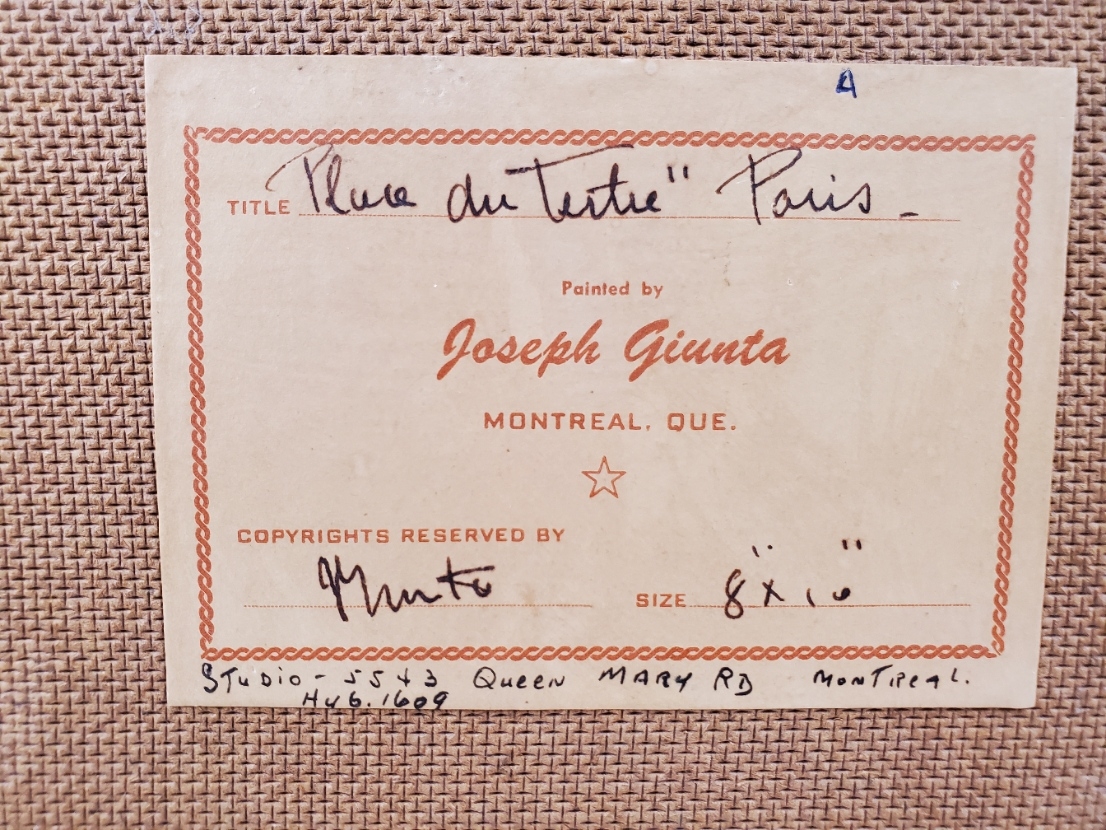 4
TITLE Place du Tertre" Paris -
Painted by
Joseph Giunta
MONTREAL, QUE.
COPYRIGHTS RESERVED BY
JGiunta SIZE 8" x 10"
STUDIO - 5543 QUEEN MARY RD MONTREAL.
HU6.1609